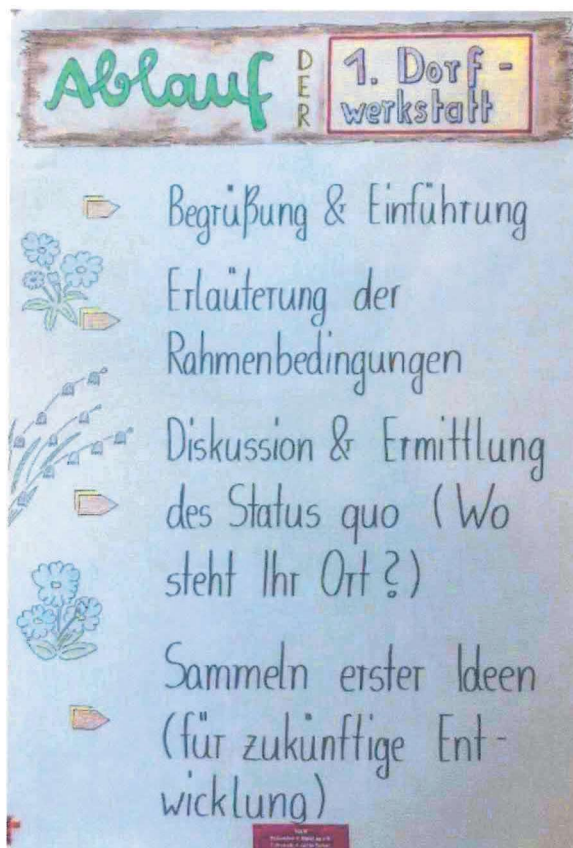 Ablauf DER 1. Dorf-
werkstatt
Begrüßung & Einführung
Erläuterung der
Rahmenbedingungen
Diskussion & Ermittlung
des Status quo (Wo
steht Ihr Ort?)
Sammeln erster Ideen
(für zukünftige Ent-
wicklung)